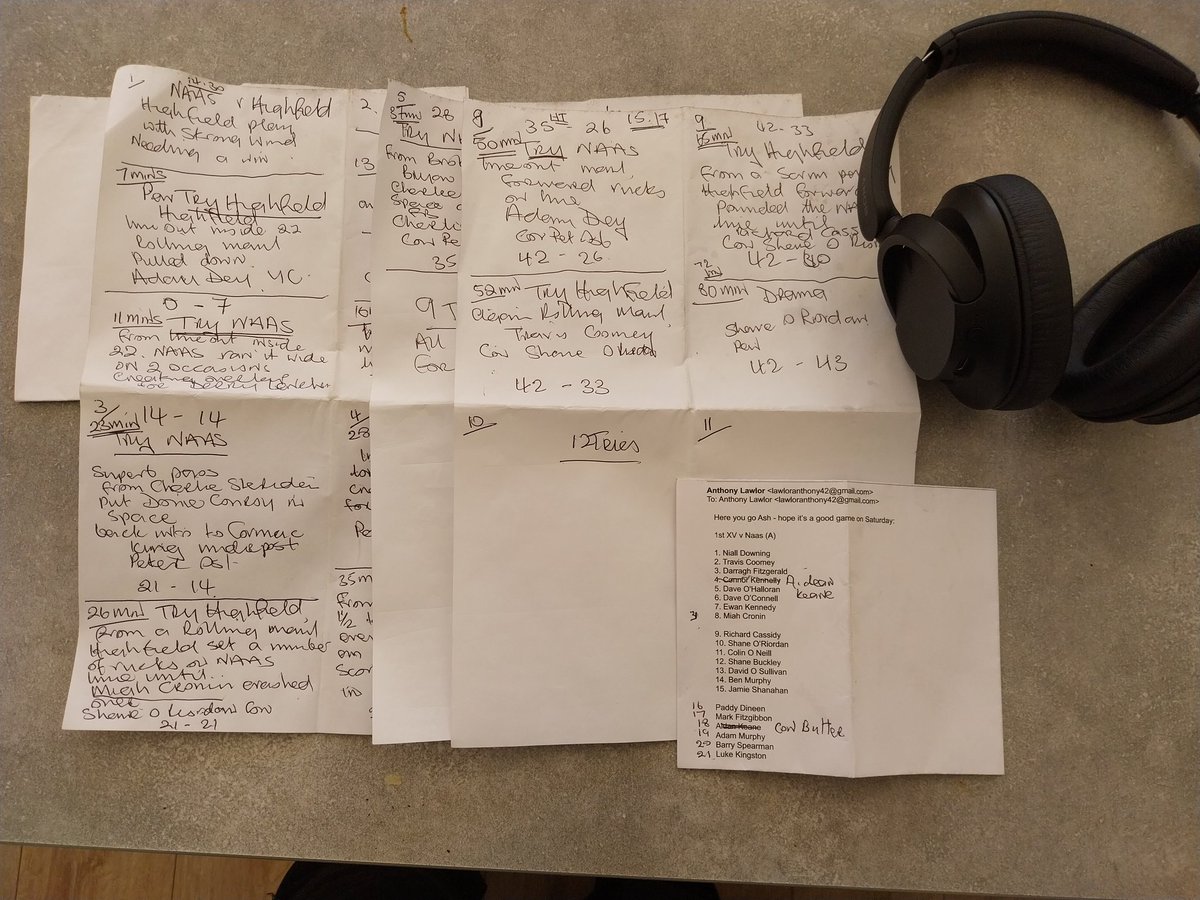 1/ 14.30
NAAS v Highfield
Highfield play
with Strong Wind
Needing a win.
7 mins
Pen Try Highfield
Highfield
line out inside 22
Rolling maul
Pulled down.
Adam Dey. YC.
0 - 7
11 mins Try NAAS
from lineout inside
22. NAAS ran it wide
on 2 occasions
Creating overlap
for
3/ 14 - 14
23 min
Try NAAS
Superb pass
from Charlie
put Donal Conroy in
Space
back into to Cormac
King underpost
Peter Osb
21 - 14
26 min Try Highfield
From a Rolling maul
Highfield set a number
of rucks on NAAS
line until..
Miah Cronin crashed
over
Shane O Riordan Con
21 - 21
2.
13
4/
28
Pe
35 m
From
1 1/2
over
on
Scor
5
37 min 28
Try NA
from
Charlie
Space
Charlie
Con Pe
35
9 T
All
For
8/ 35 HT 26 15.17
50 min Try NAAS
line out maul,
forward rucks
on line
Adam Dey
Con Pet Osb
42 - 26.
52 min Try Highfield
Rolling maul
Travis Coomey
Con Shane O Riordan
42 - 33
9 42 - 33
65 min
Try Highfield
From a Scrum
Highfield forward
Pounded the NA
line until
Richard Cass
Con Shane O Rior
42 - 40
72
80 min Drama
Shane O Riordan
Pen
42 - 43
10
12 Tries
11
Anthony Lawlor <lawloranthony42@gmail.com>
To: Anthony Lawlor <lawloranthony42@gmail.com>
Here you go Ash - hope it's a good game on Saturday:
1st XV v Naas (A)
1. Niall Downing
2. Travis Coomey
3. Darragh Fitzgerald
4. Connor Kennelly Aidean Keane
5. Dave O'Halloran
6. Dave O'Connell
7. Ewan Kennedy
8. Miah Cronin
9. Richard Cassidy
10. Shane O'Riordan
11. Colin O Neill
12. Shane Buckley
13. David O Sullivan
14. Ben Murphy
15. Jamie Shanahan
16 Paddy Dineen
17 Mark Fitzgibbon
18 Aidan Keane Con Butter
19 Adam Murphy
20 Barry Spearman
21 Luke Kingston